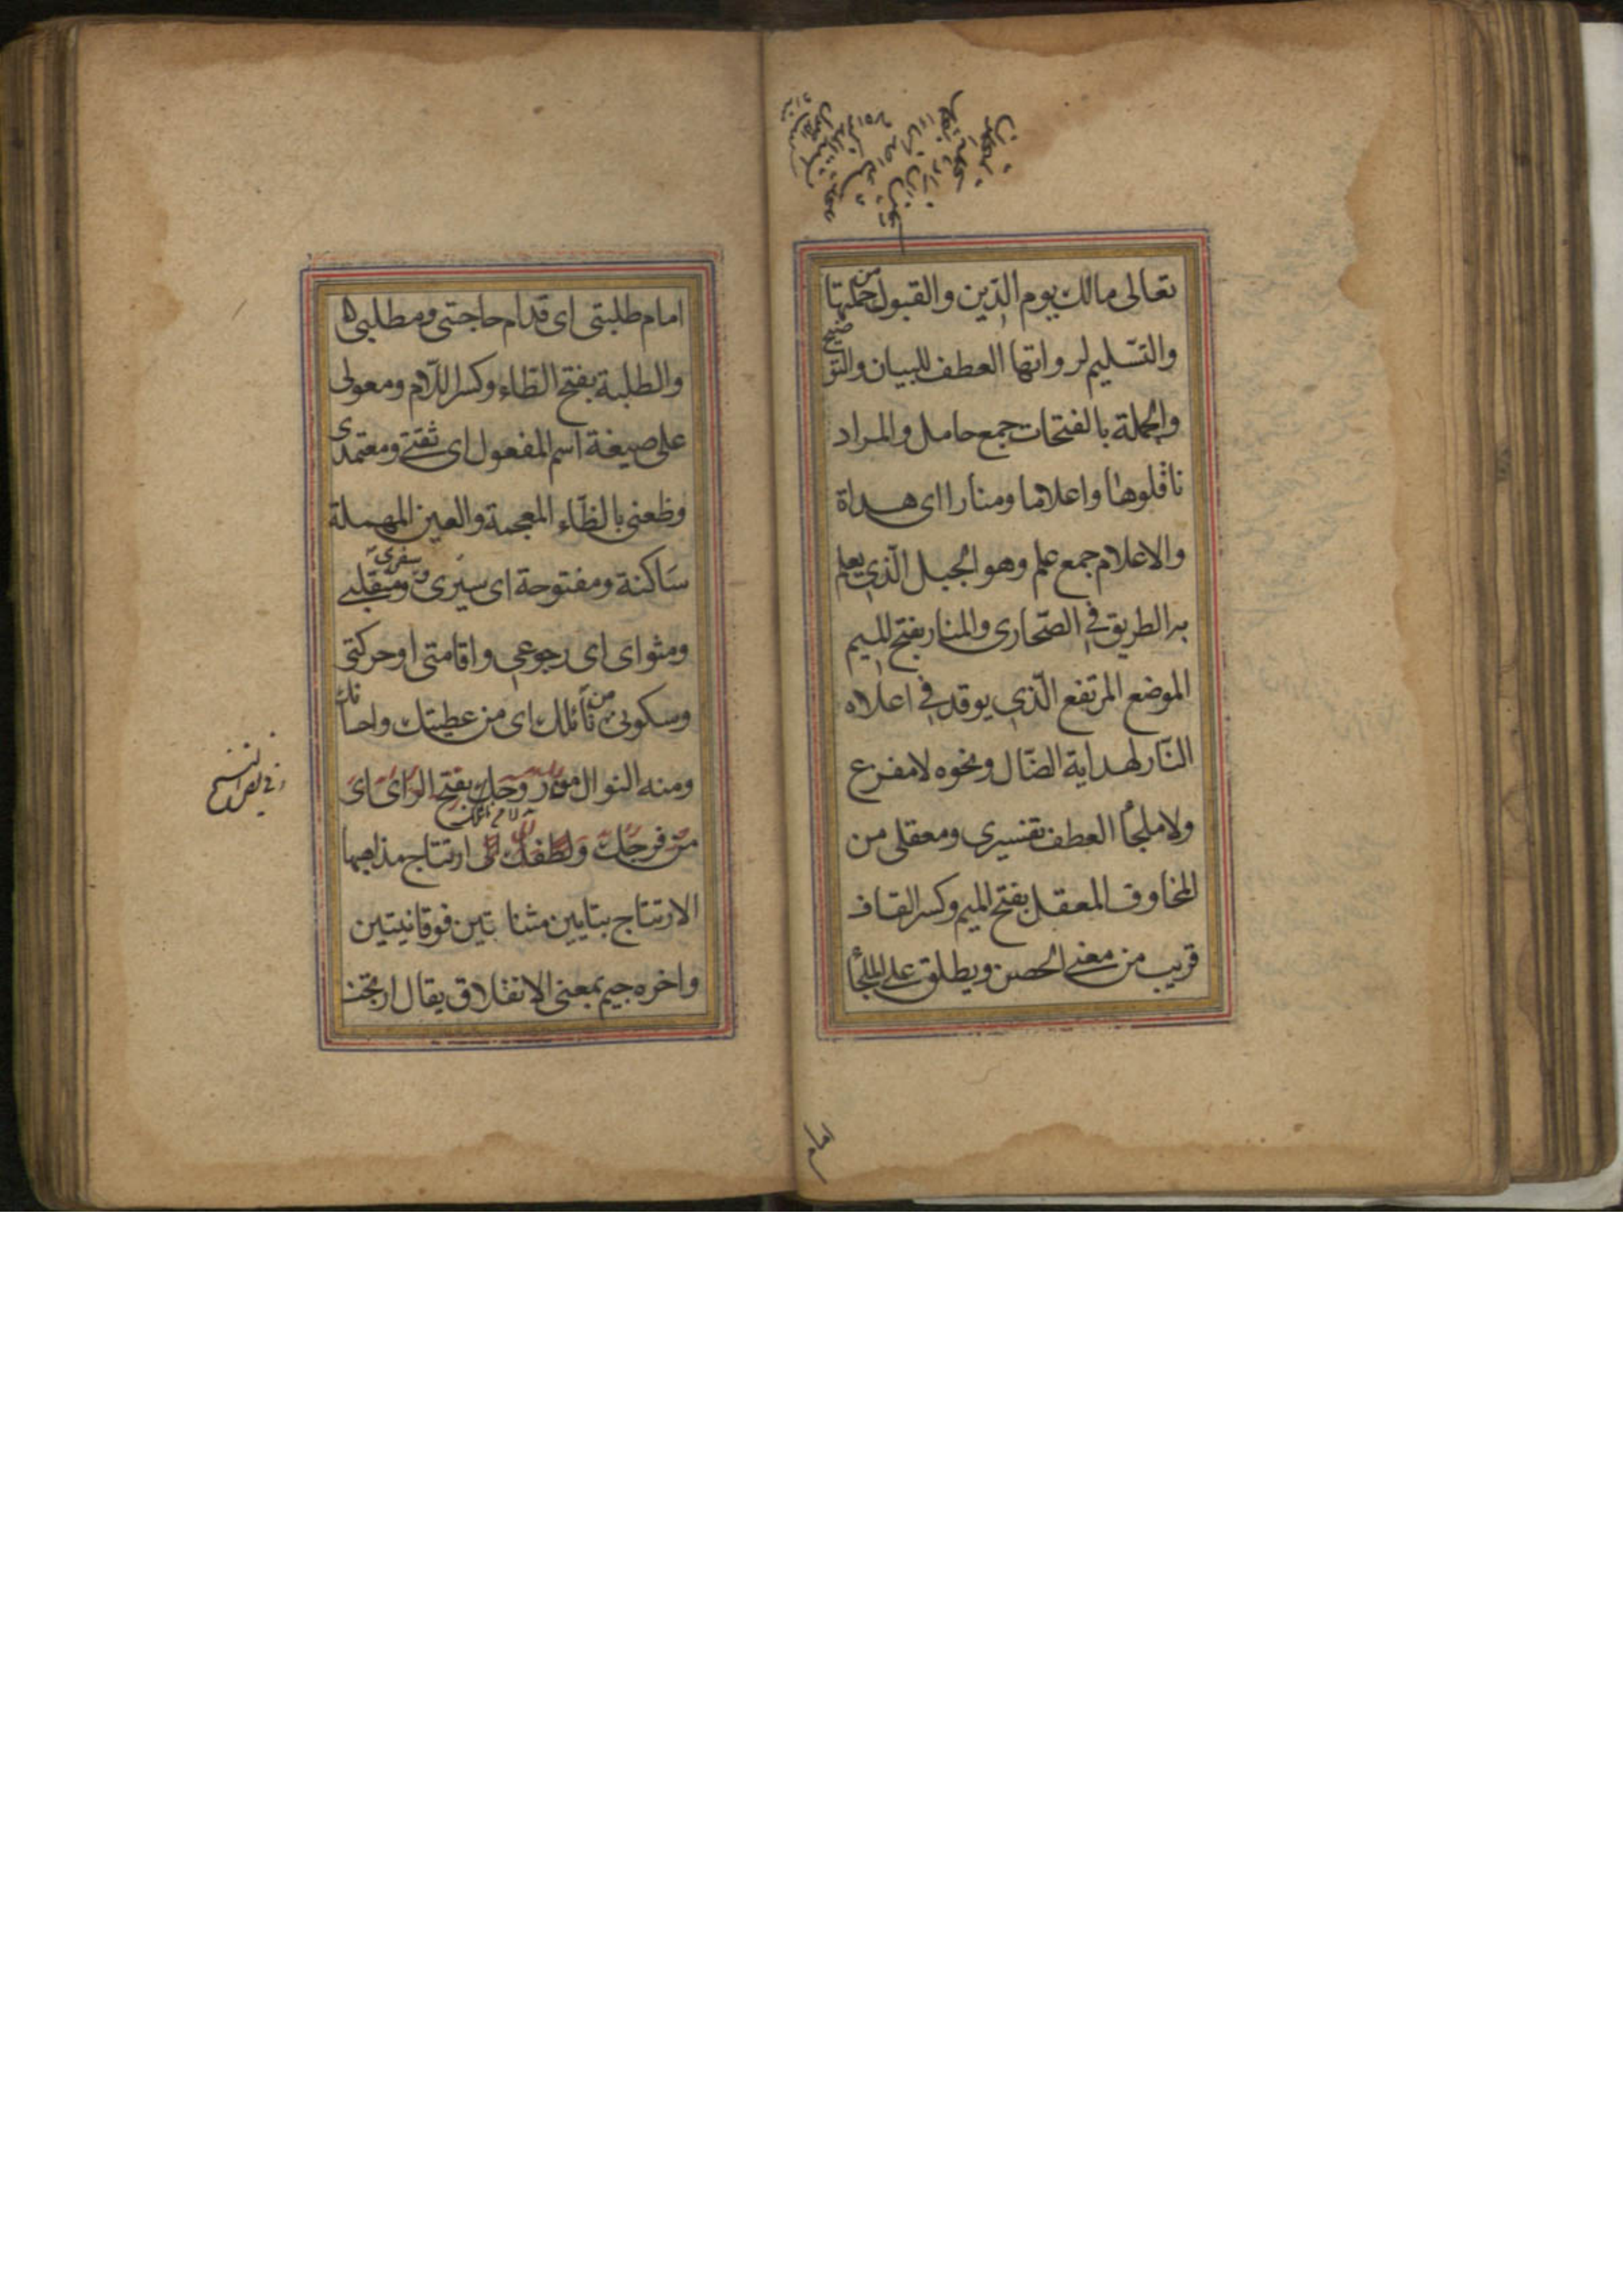 تعالى مالك يوم الدّين والقبول من حملتها
والتّسليم لرواتها العطف للبيان والتوضيح
والحملة بالفتحات جمع حامل والمراد
ناقلوها واعلاما ومنارا اى هداة
والاعلام جمع علم وهو الجبل الّذي يعلم
به الطريق في الصّحارى والمنار بفتح الميم
الموضع المرتفع الّذي يوقد في اعلاه
النّار لهداية الضّال ونحوه لا مفزع
ولا ملجأ العطف تفسيرى ومعقلى من
المخاوف المعقل بفتح الميم وكسر القاف
قريب من معنى الحصن ويطلق على الملجأ
امام
امام طلبتى اى قدّام حاجتى ومطلبى
والطلبة بفتح الطّاء وكسر اللّام ومعولى
على صيغة اسم المفعول اى ثقتى ومعتمدى
وظعنى بالظّاء المعجمة والعين المهملة
ساكنة ومفتوحة اى سيرى وسفرى ومنقلبى
ومثواى اى رجوعى واقامتى او حركتى
وسكونى من نائلك اى من عطيتك واحسانك
ومنه النوال من روحك بفتح الراى اى
من فرجك ولطفك لى ارتتاج مذاهبها
الارتتاج بتايين مثناتين فوقانيتين
واخره جيم بمعنى الانغلاق يقال ارتج